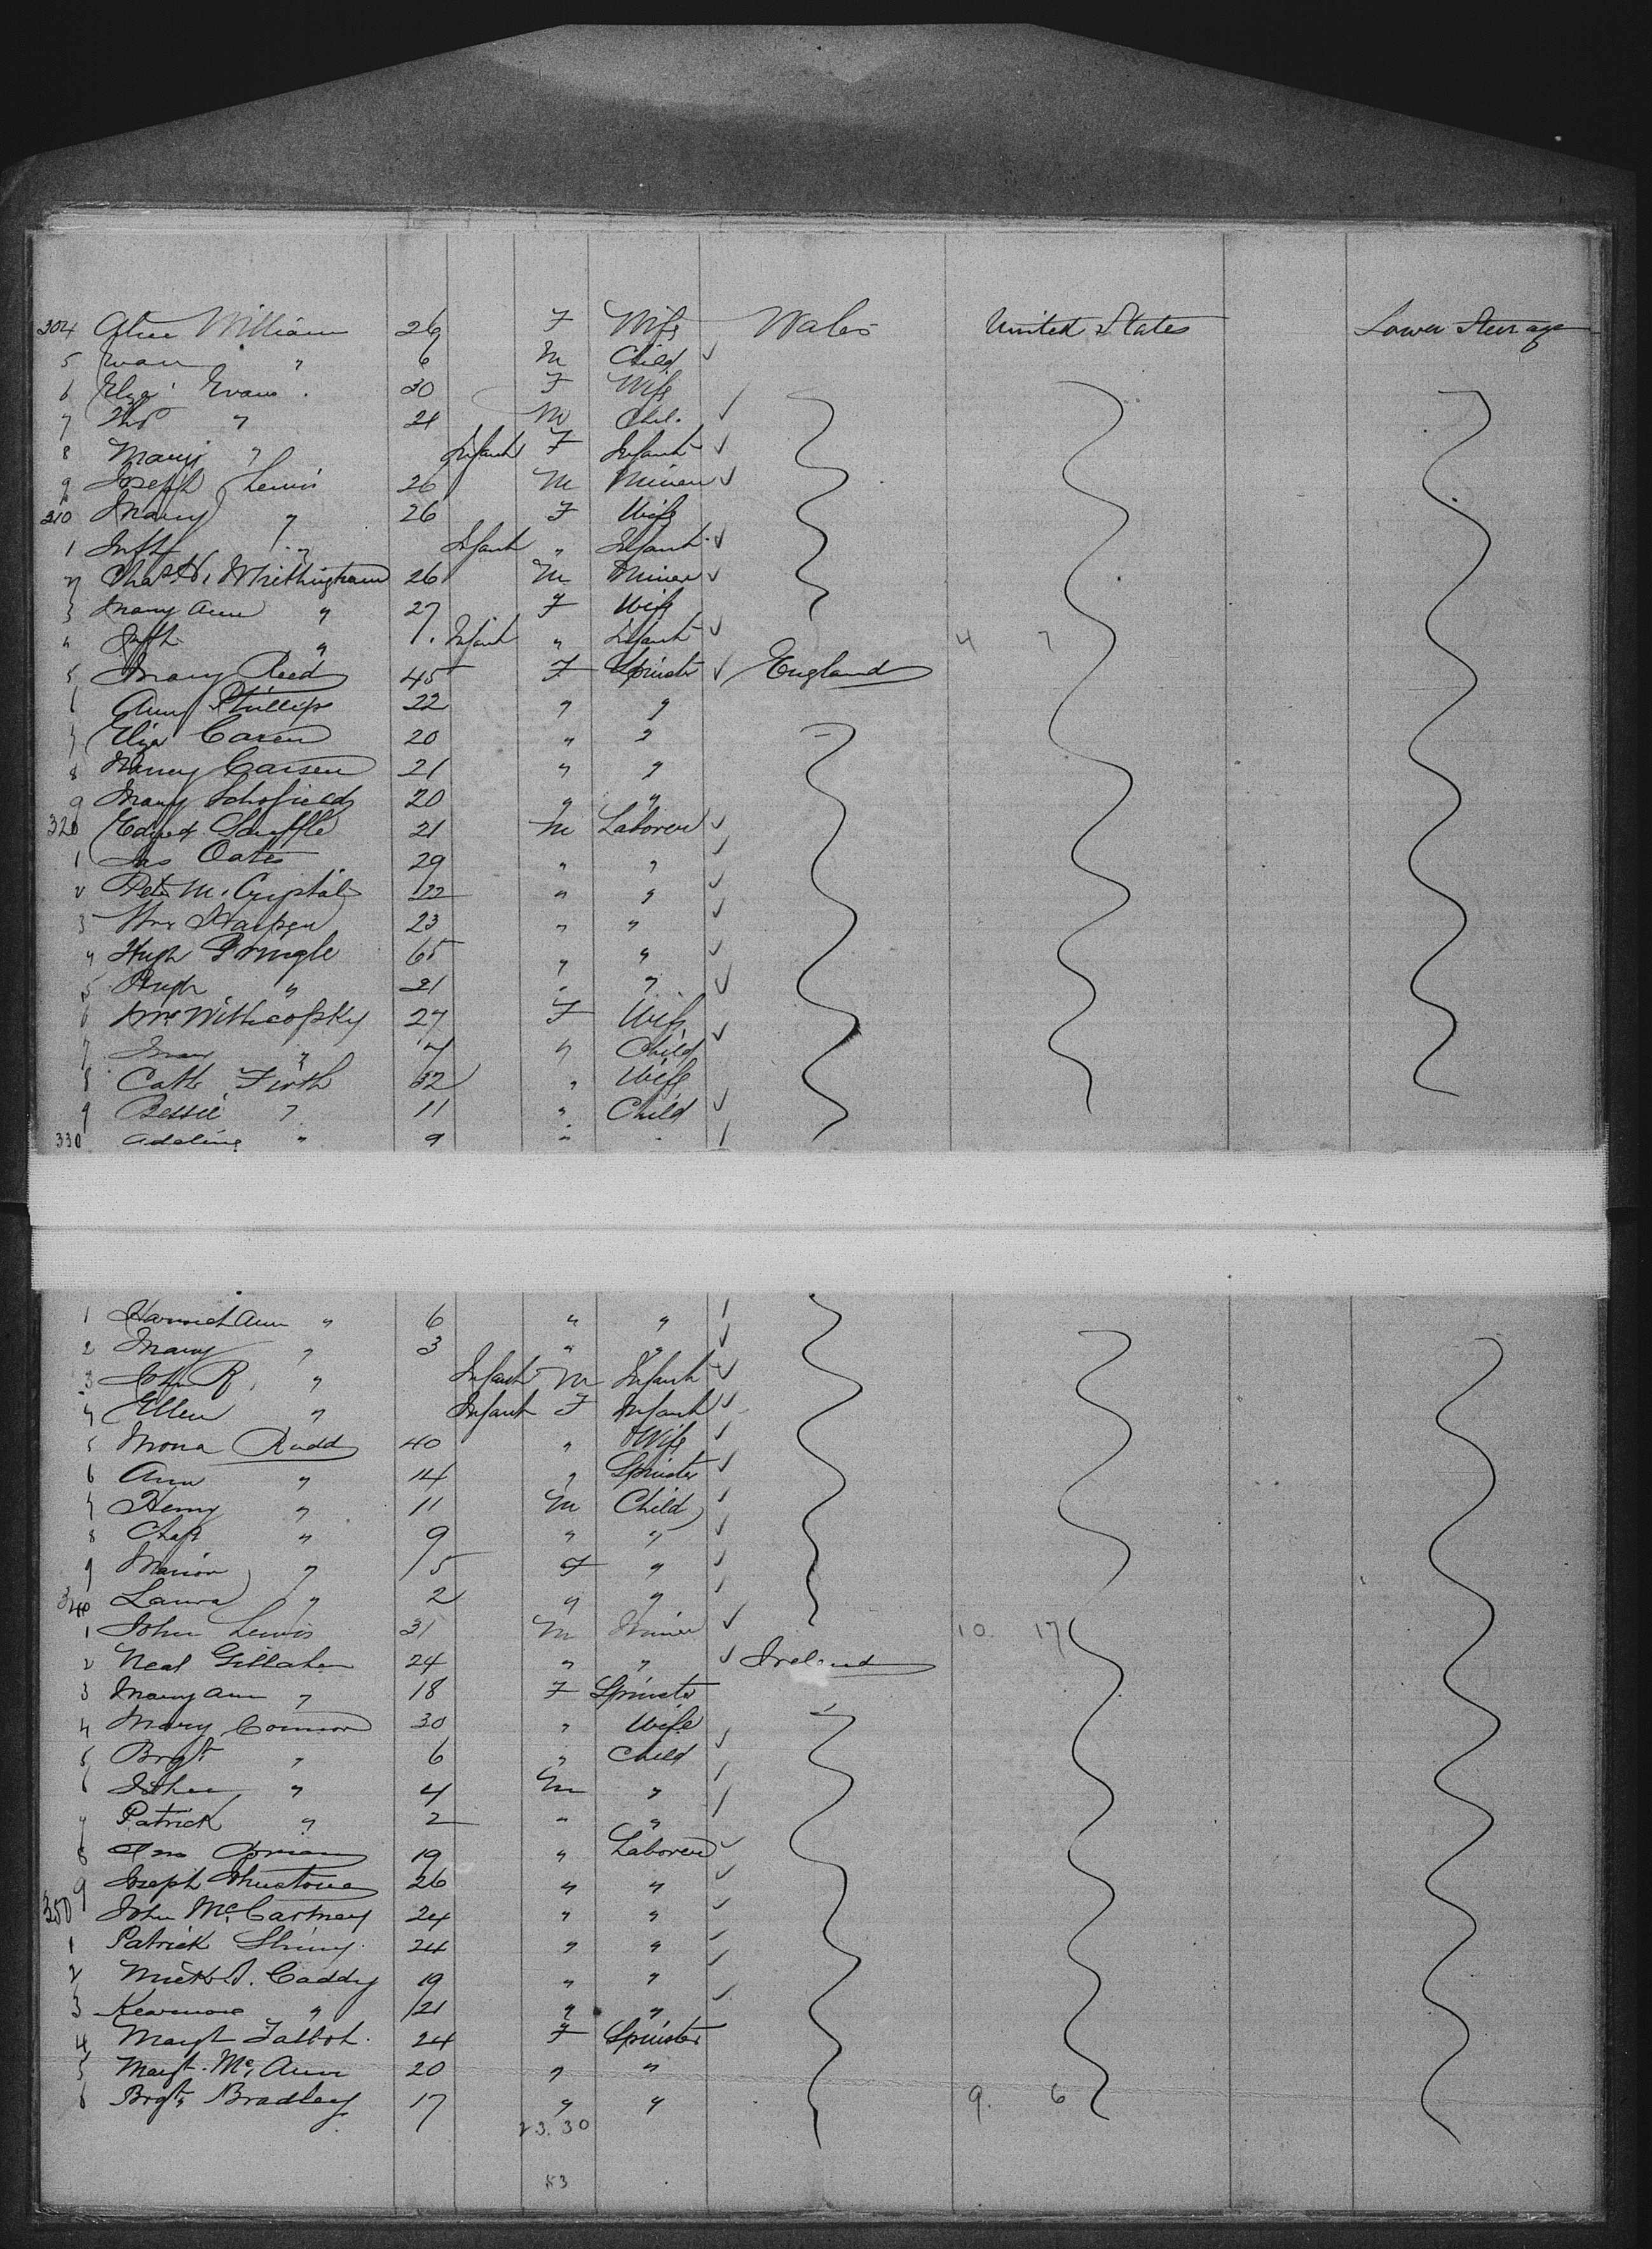 304 Alice William 26 F Wife Wales United States Lower Steerage
5 Evan " 6 M Child ✓
6 Eliza Evans 30 F Wife
7 Thos " 21 M Chil. ✓
8 Mary " Infant F Infant ✓
9 Joseph Lewis 26 M Miner ✓
310 Mary " 26 F Wife
1 Inft " Infant " Infant ✓
2 Chas H. Whithingham 26 M Miner ✓
3 Mary Ann " 27 F Wife
4 Inft " Infant " Infant ✓ 4 7
5 Mary Reed 45 F Spinster ✓ England
6 Ann Phillips 22 " "
7 Eliza Caren 20 " "
8 Nancy Carsen 21 " "
9 Mary Schofield 20 " "
320 21 M Laborer ✓
1 Jas Oates 29 " " ✓
2 Peter Mc 22 " " ✓
3 Wm Harper 23 " " ✓
4 Hugh Pringle 65 " " ✓
5 Hugh " 21 " " ✓
6 27 F Wife ✓
7 " 7 " Child
8 Cath Firth 32 " Wife
9 Bessie " 11 " Child ✓
330 Adeline " 9 " " ✓
1 Harriet Ann " 6 " " ✓
2 Mary " 3 " " ✓
3 John R. " Infant M Infant ✓
4 Ellen " Infant F Infant ✓
5 Mona Rudd 40 " Wife ✓
6 Ann " 14 " Spinster ✓
7 Henry " 11 M Child ✓
8 Chas " 9 " " ✓
9 Marion " 5 F " ✓
340 Laura " 2 " " ✓
1 John Lewis 31 M Miner ✓ 10. 17
2 Neal Gillaher 24 " " ✓ Ireland
3 Mary Ann " 18 F Spinster
4 Mary Connor 30 " Wife
5 Brgt " 6 " Child ✓
6 John " 4 M " ✓
7 Patrick " 2 " " ✓
8 19 " Laborer ✓
9 Joseph 26 " " ✓
350 John McCartney 24 " " ✓
1 Patrick 24 " " ✓
2 Caddy 19 " " ✓
3 " 21 " " ✓
4 Margt Talbot. 24 F Spinster
5 Margt. Mc Ann 20 " "
6 Brgt. Bradley 17 " " 9. 6
23. 30
53